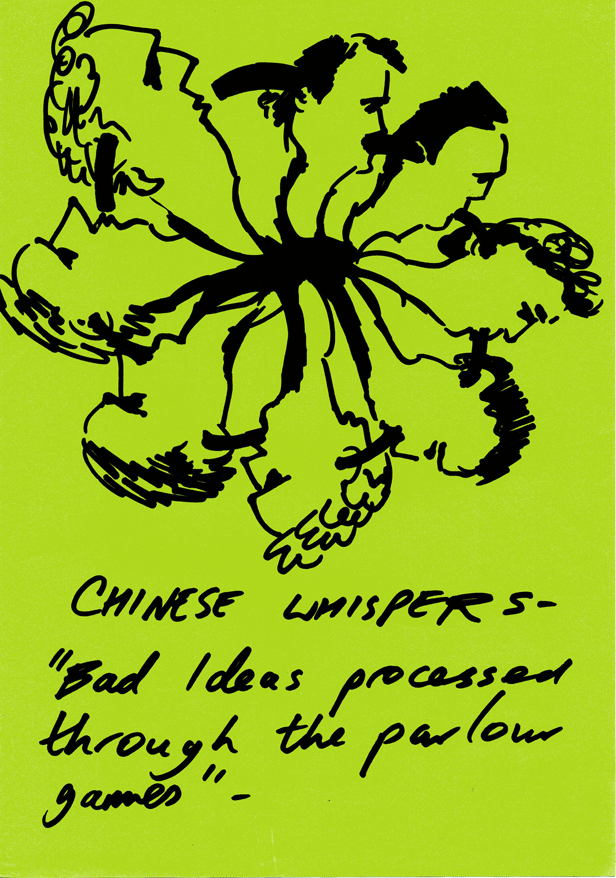 CHINESE WHISPERS-
"Bad Ideas processed
through the parlour
games"-